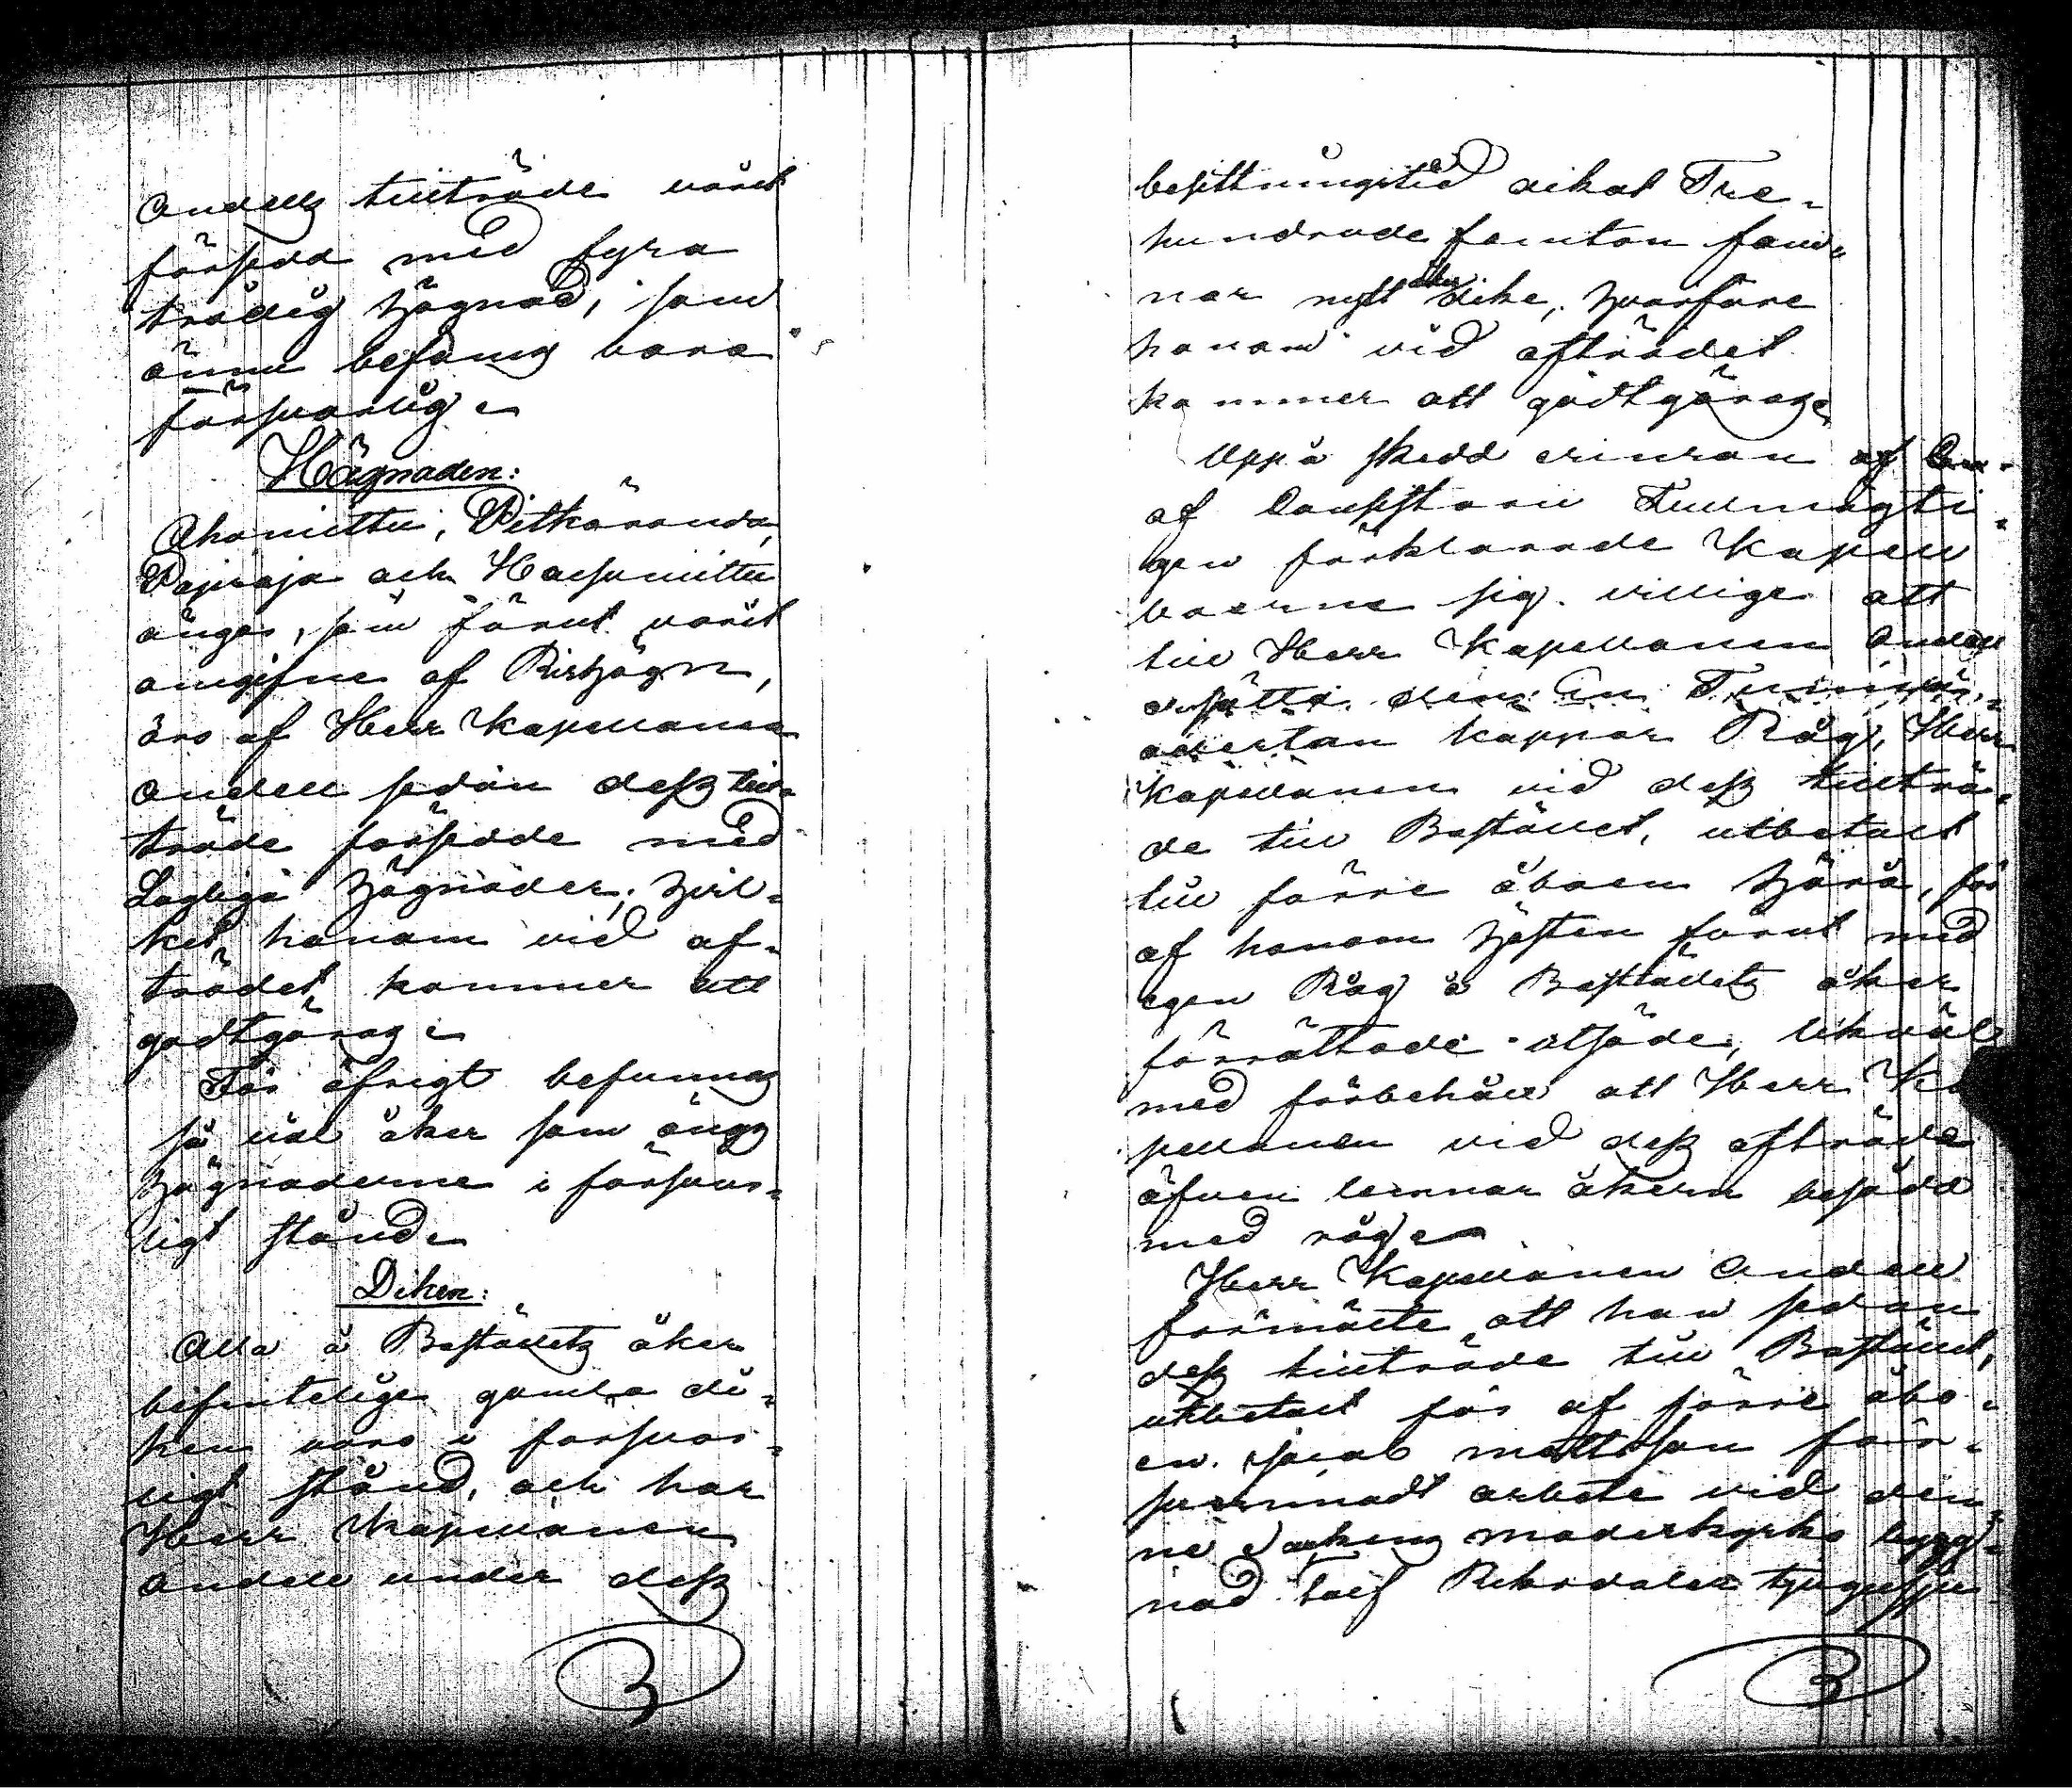 Andells tillträde varit
försedd med fyra
trädig hägnad, som
ännu befanns vara
försvarlig.
Hägnaden:
Ahoniittu, Pitkäranda,
Pajuoja och Haesuniittu
ängar, som förut varit
omgifne af Rishägn,
äro af Herr Kapellanen
Andell sedan dess till-
träde försedde med
Lagliga hägnader; hvil-
ket honom vid af-
trädet kommer att
godtgöras.
För öfrigt befunnos
så väl åker som ängs
hägnaderne i försvar-
ligt stånd.
Diken:
Alla å Boställets åker
befintelige gamla di-
ken voro i försvar-
ligt stånd, och har
Herr Kapellanen
Andell under dess
besittningstid dikat Tre-
hundrade femton fam-
nar nytt åker dike, hvarföre
honom vid afträdet
kommer att godtgöras.
Uppå skedd erinran af
af Consistorii Fullmägti-
gen förklarade Kapell
boerne sig villige att
till Herr Kapellanen Andell
ersätta den En Tunna
aderton kappor Råg, Herr
Kapellanen vid dess tillträ-
de till Bostället, utbetalt
till förre åboen härå, för
af honom hösten förut med
egen Råg å Boställets åker
förrättade utsäde, likväl
med förbehåll att Herr Ka
pellanen vid dess afträde
äfven lemnar åkern besådd
med råg.
Herr Kapellanen Andell
förmälte att han sedan
dess tillträde till Bostället,
utbetalt för af förre åbo-
en Jacob Mattsson för-
summadt arbete vid den-
ne Sockens moderkyrko bygg-
nad Tolf Riksdaler tjugusju